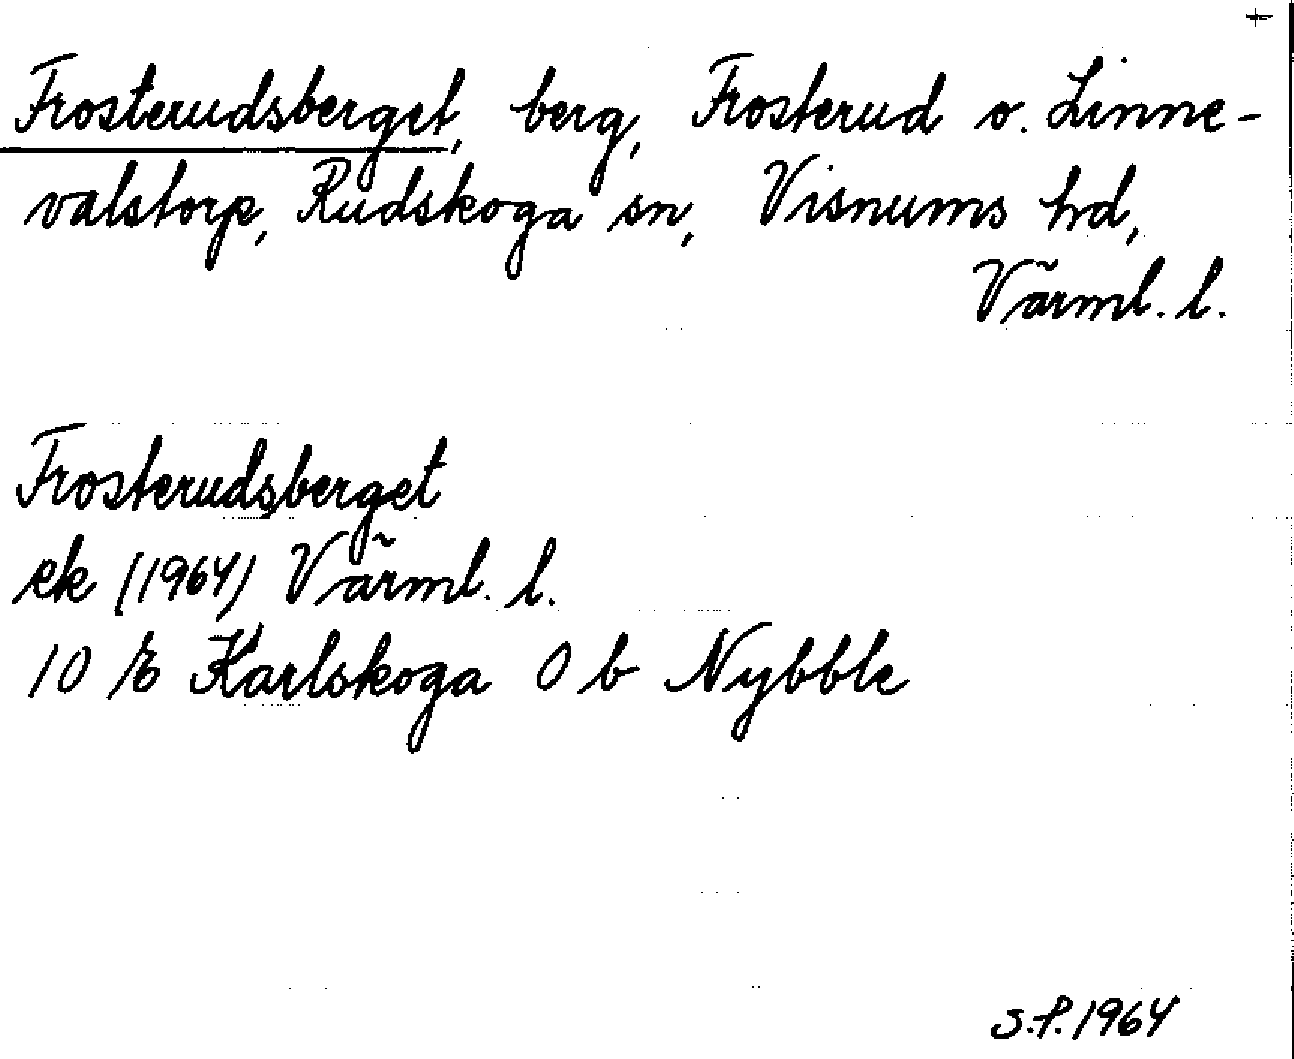 +
Frosterudsberget, berg, Frosterud o. Linne-
valstorp, Rudskoga sn, Visnums hrd,
Värml. l.
Frosterudsberget
ek (1964) Värml. l.
10 E Karlskoga 0 b Nybble
S.P. 1964